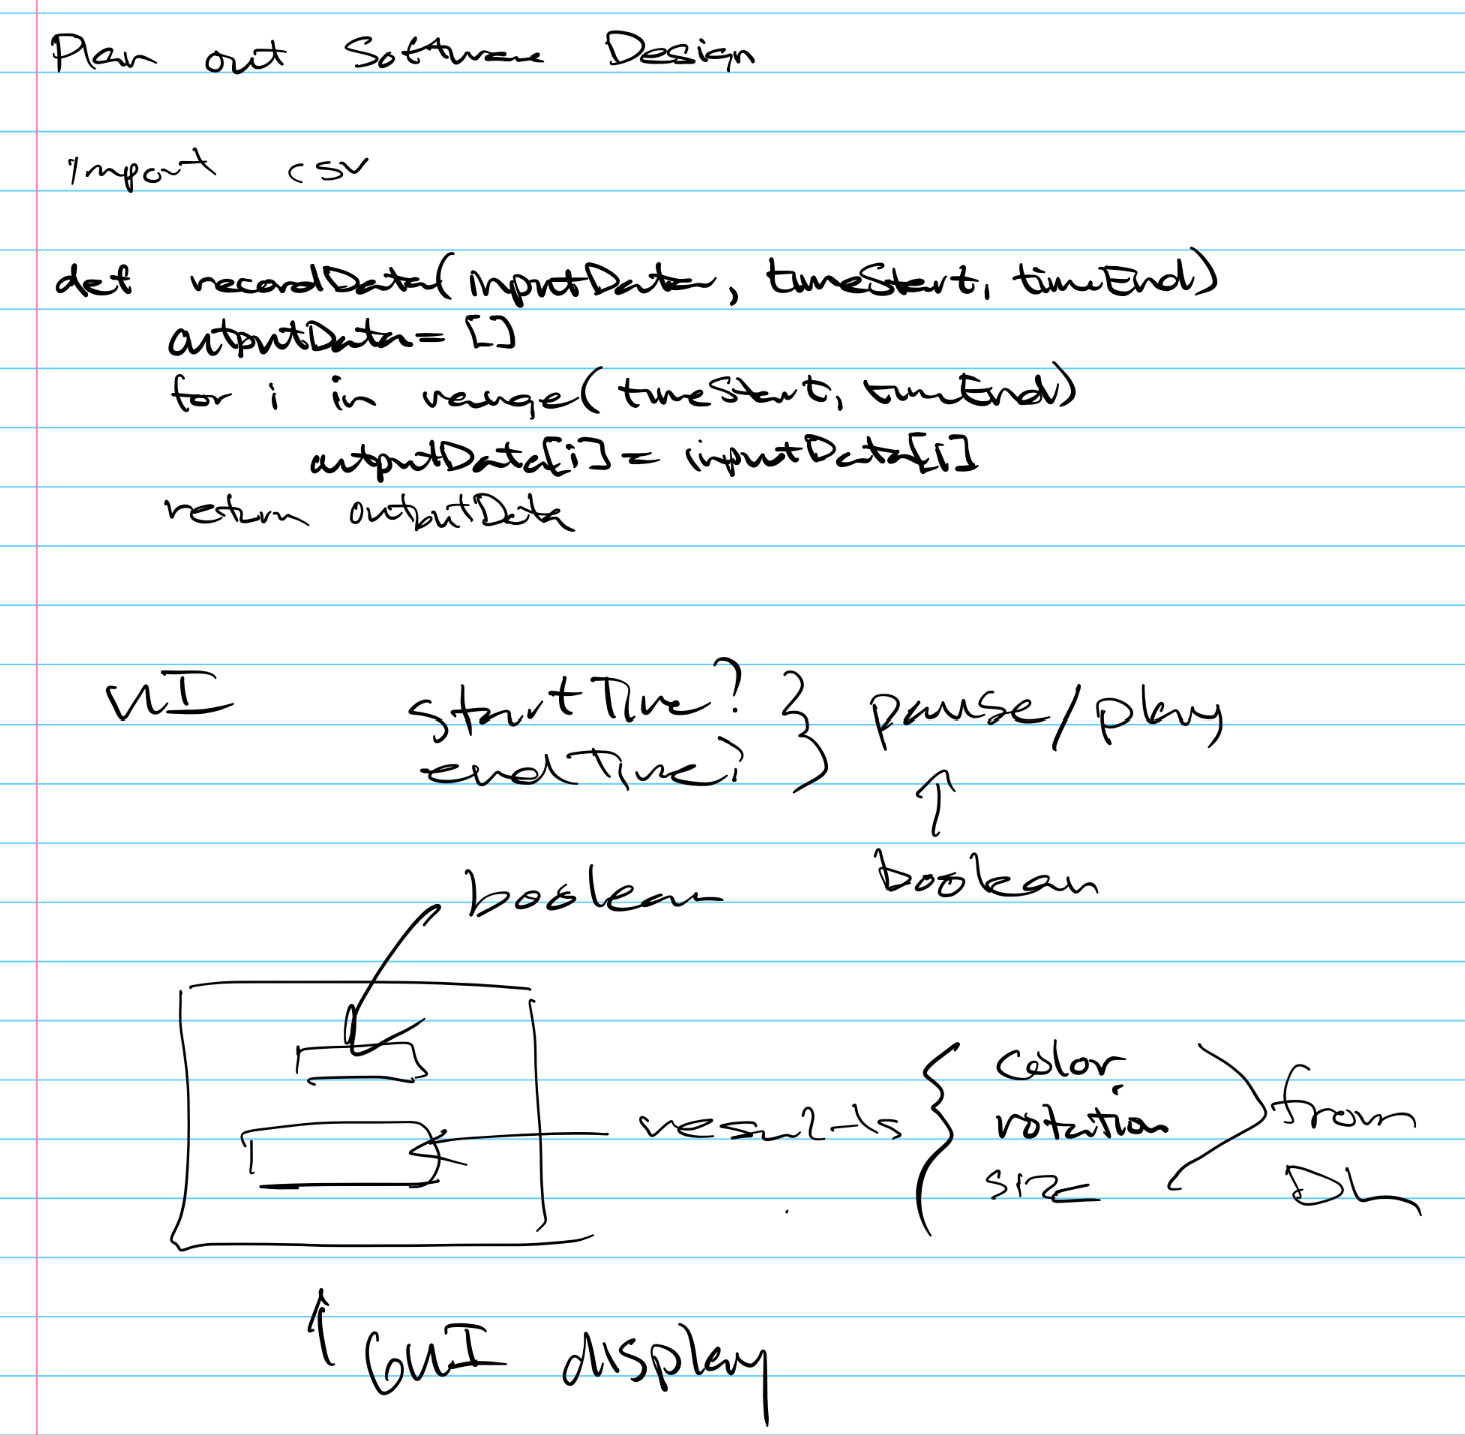 Plan out Software Design
import csv
def recordData(inputData, timeStart, timeEnd)
outputData = []
for i in range(timeStart, timeEnd)
outputData[i] = inputData[i]
return outputData
UI startTime? } pause/play
endTime?
↑
boolean boolean
color
results { rotation } from
size DL
↑ GUI display